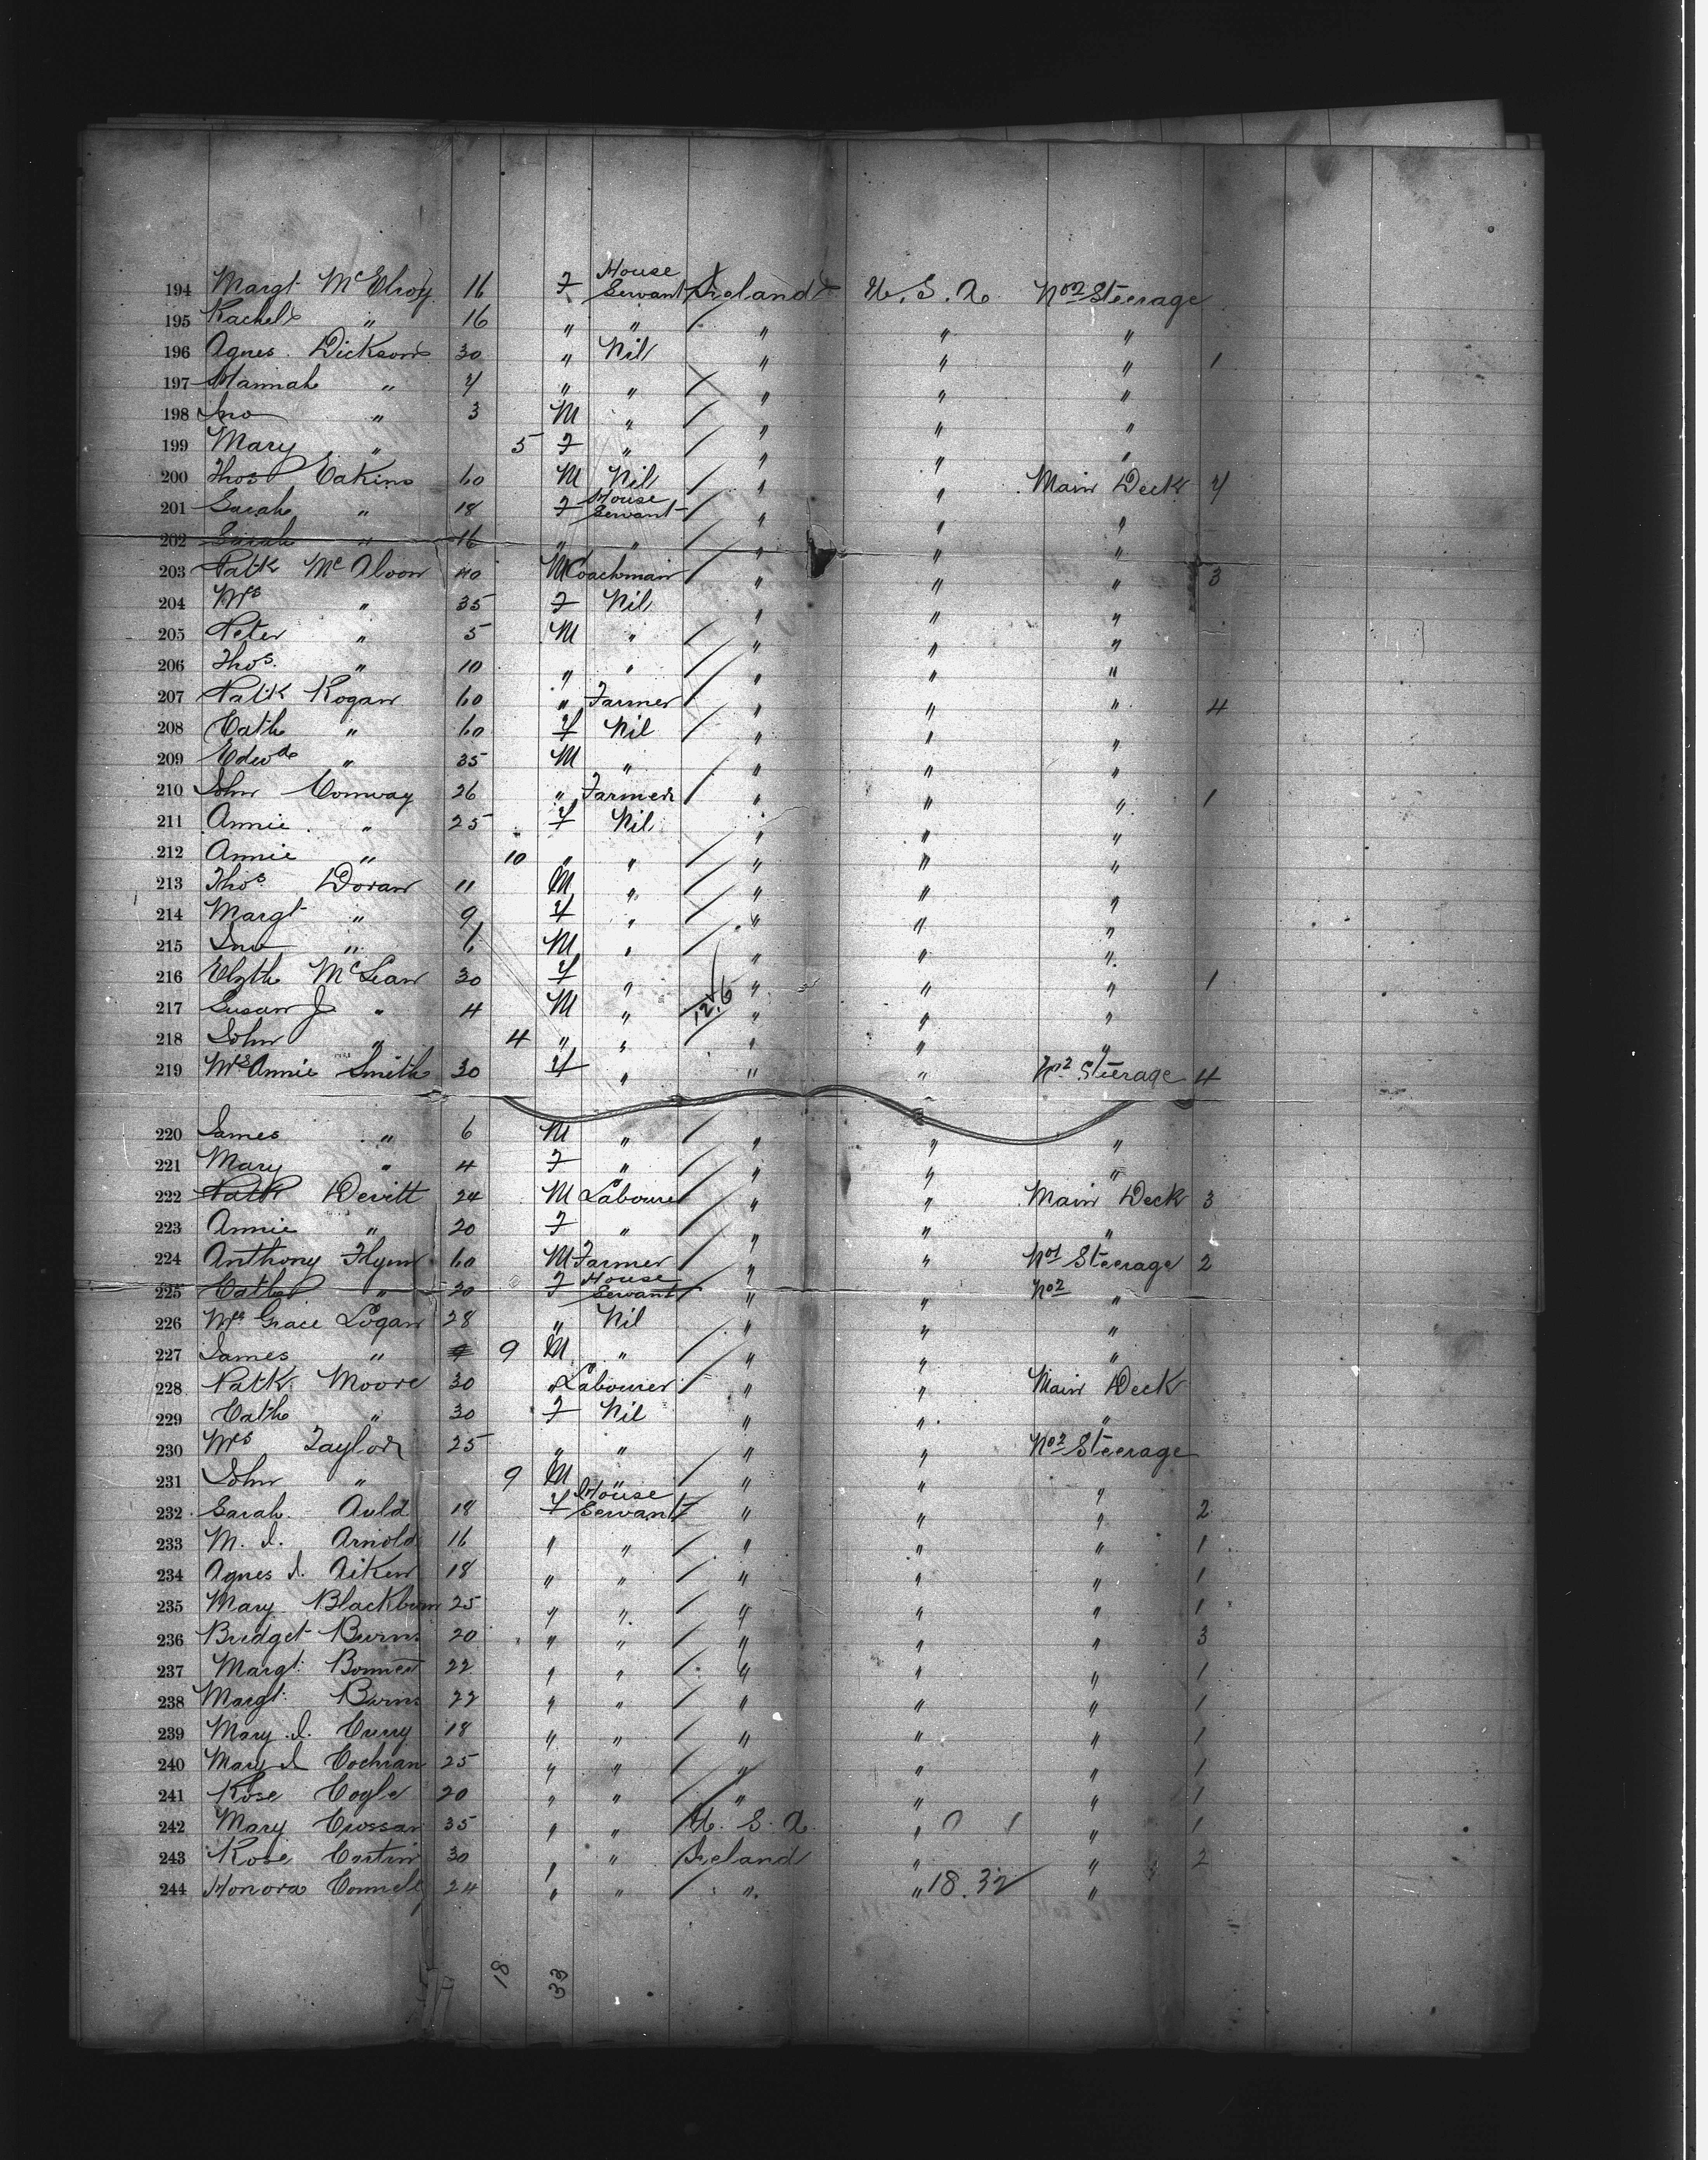 194 Margt McElroy 16 F House Servant Ireland U.S.A. No2 Steerage
195 Rachel " 16 " " " " "
196 Agnes Dickson 30 " Nil " " " 1
197 Hannah " 4 " " " " "
198 Jno " 3 M " " " "
199 Mary " 5 F " " " "
200 Thos Eakins 60 M Nil " " Main Deck 4
201 Sarah " 18 F House Servant " " "
202 Sarah " 16 " " " " "
203 Patk McAloon 40 M Coachman " " " 3
204 Mrs " 35 F Nil " " "
205 Peter " 5 M " " " "
206 Thos. " 10 " " " " "
207 Patk Rogan 60 " Farmer " " " 4
208 Cath " 60 F Nil " " "
209 Edwd " 35 M " " " "
210 John Conway 26 " Farmer " " " 1
211 Annie " 25 F Nil " " "
212 Annie " 10 " " " " "
213 Thos. Doran 11 M " " " "
214 Margt " 9 F " " " "
215 Jno " 6 M " " " "
216 Elzth McLean 30 F " " " " 1
217 Susan J " 4 M " 12.6 " " "
218 John " 4 " " " " "
219 Mrs Annie Smith 30 F " " " No2 Steerage 4
220 James " 6 M " " " "
221 Mary " 4 F " " " "
222 Patk Devitt 24 M Labourer " " Main Deck 3
223 Annie " 20 F " " " "
224 Anthony Flynn 60 M Farmer " " No1 Steerage 2
225 Cath " 20 F House Servant " " No2 "
226 Mrs Grace Logan 28 " Nil " " "
227 James " 9 M " " " "
228 Patk Moore 30 " Labourer " " Main Deck
229 Cath " 30 F Nil " " "
230 Mrs Taylor 25 " " " " No2 Steerage
231 John " 9 M " " " "
232 Sarah Auld 18 F House Servant " " " 2
233 M. J. Arnold 16 " " " " " 1
234 Agnes J. Aiken 18 " " " " " 1
235 Mary Blackburn 25 " " " " " 1
236 Bridget Burns 20 " " " " " 3
237 Margt. Bonner 22 " " " " " 1
238 Margt. Burns 22 " " " " " 1
239 Mary J. Curry 18 " " " " " 1
240 Mary J Cochran 25 " " " " " 1
241 Rose Cogle 20 " " " " " 1
242 Mary Crossan 35 " " U.S.A. " " 1
243 Rose Cartin 30 " " Ireland " " 2
244 Honora Connell 24 " " " " 18.32 "
18 33